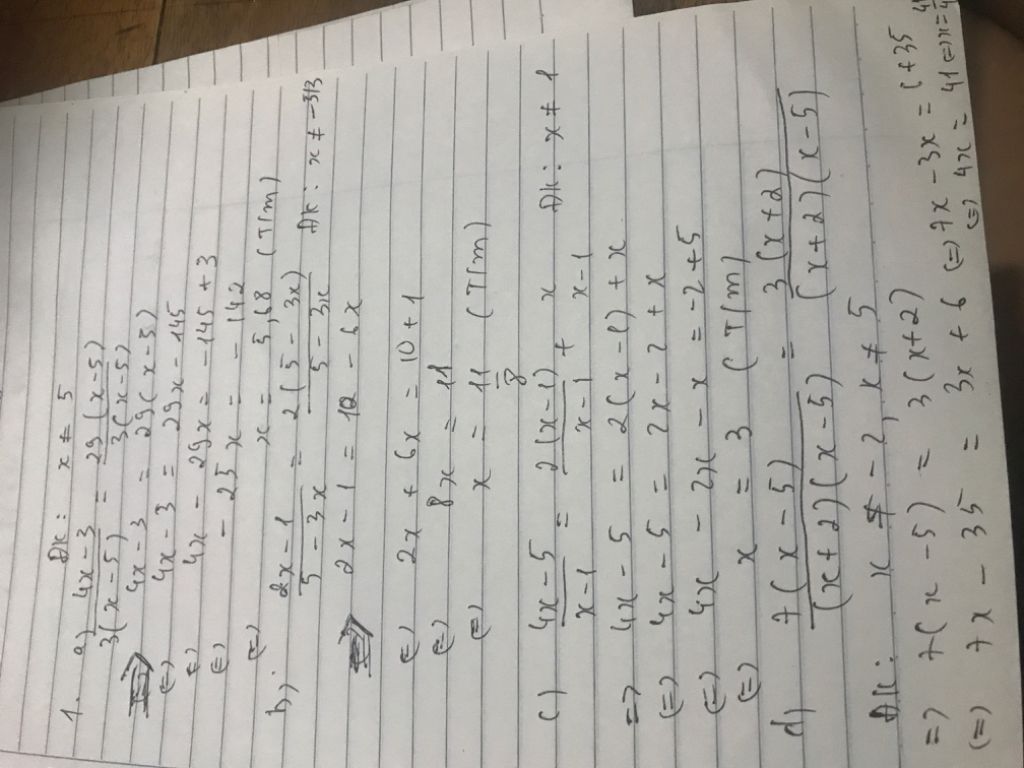 1. Đk: x ≠ 5
a) 4x-3 / 3(x-5) = 29(x-5) / 3(x-5)
4x-3 = 29(x-5)
(=) 4x-3 = 29x-145
(=) 4x-29x = -145+3
(=) -25x = -142
(=) x = 5,68 (T/m)
b) 2x-1 / 5-3x = 2(5-3x) / 5-3x Đk: x ≠ -5/3
2x-1 = 10-6x
(=) 2x+6x = 10+1
(=) 8x = 11
(=) x = 11/8 (T/m)
c) 4x-5 / x-1 = 2(x-1) / x-1 + x / x-1 Đk: x ≠ 1
=) 4x-5 = 2(x-1)+x
(=) 4x-5 = 2x-2+x
(=) 4x-2x-x = -2+5
(=) x = 3 (T/m)
d) 7(x-5) / (x+2)(x-5) = 3(x+2) / (x+2)(x-5)
Đk: x ≠ -2, x ≠ 5
=) 7(x-5) = 3(x+2)
(=) 7x-35 = 3x+6 (=) 7x-3x = 6+35
(=) 4x = 41 (=) x = 41/4